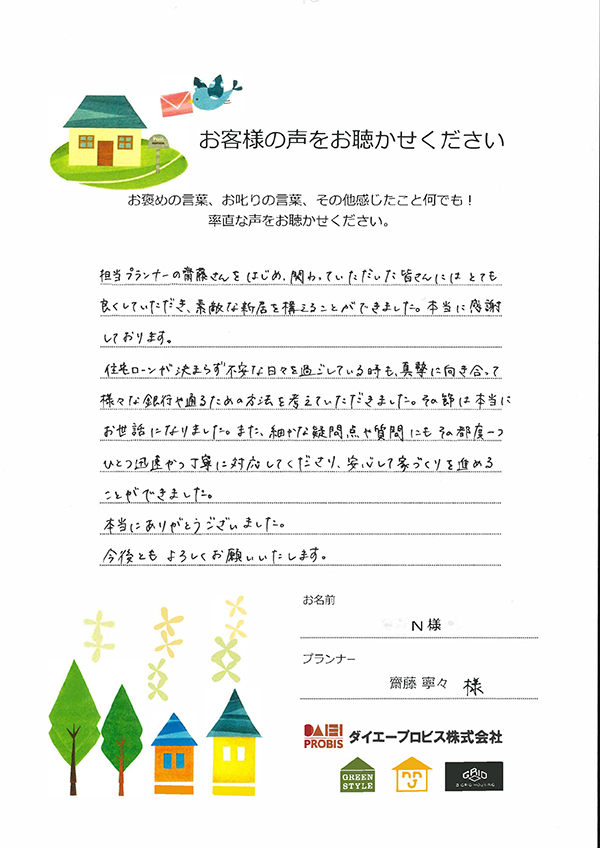 お客様の声をお聴かせください
お褒めの言葉、お叱りの言葉、その他感じたこと何でも！
率直な声をお聴かせください。
担当プランナーの齋藤さんをはじめ、関わっていただいた皆さんにはとても
良くしていただき、素敵な新居を構えることができました。本当に感謝
しております。
住宅ローンが決まらず不安な日々を過ごしている時も、真摯に向き合って
様々な銀行や通るための方法を考えていただきました。その節は本当に
お世話になりました。また、細かな疑問点や質問にもその都度一つ
ひとつ迅速かつ丁寧に対応してくださり、安心して家づくりを進める
ことができました。
本当にありがとうございました。
今後ともよろしくお願いいたします。
お名前
N様
プランナー
齋藤 寧々 様
DAIEI PROBIS ダイエープロビス株式会社
GREEN STYLE
GRID